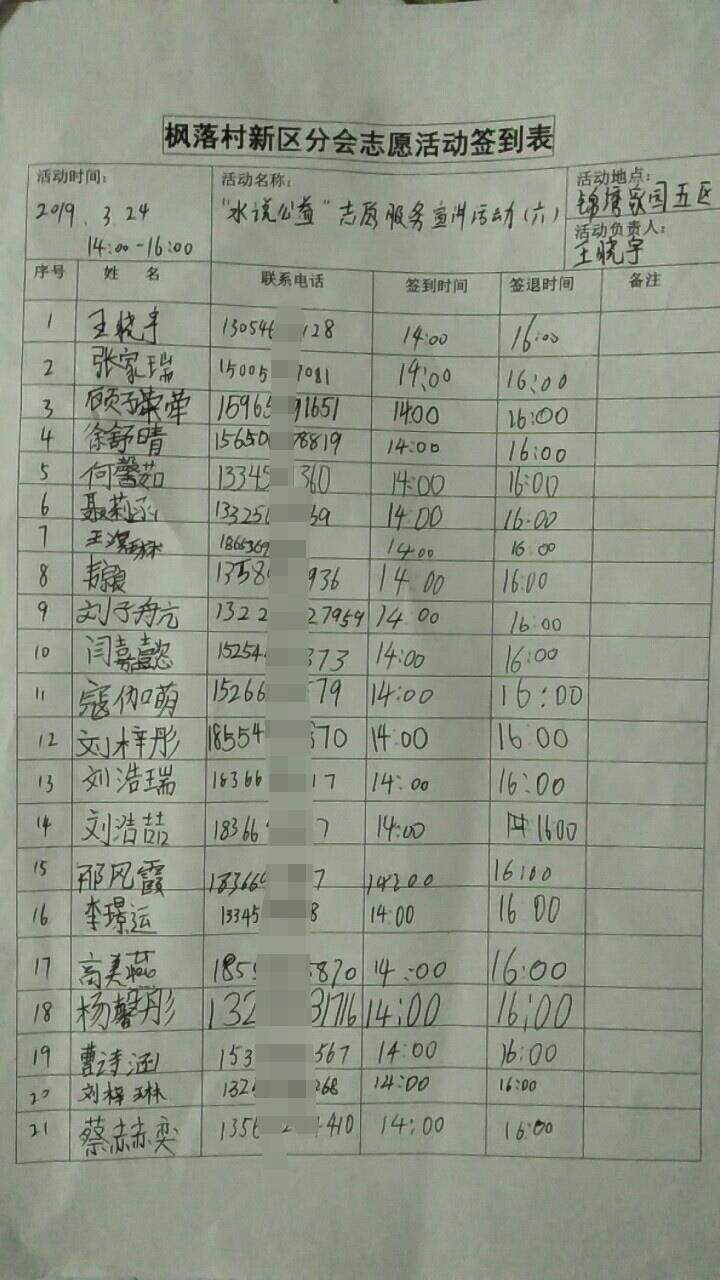 枫落村新区分会志愿活动签到表
活动时间: 活动名称: 活动地点:
2019.3.24 "水说公益"志愿服务宣讲活动(六) 锦塘家园五区
14:00-16:00 活动负责人:
王晓宇
序号 姓 名 联系电话 签到时间 签退时间 备注
1 王晓宇 13054 128 14:00 16:00
2 张家瑞 15005 7081 14:00 16:00
3 顾子荣荦 15965 91651 1400 16:00
4 徐舒晴 15650 78819 14:00 16:00
5 何馨茹 13345 360 14:00 16:00
6 聂莉涵 13325 69 14:00 16:00
7 王 琳 1866369 14:00 16 00
8 1358 936 14 00 16:00
9 刘子舟亢 1322 27959 14:00 16:00
10 闫嘉懿 15254 373 14:00 16:00
11 寇伽萌 15266 79 14:00 16:00
12 刘梓彤 18554 870 14:00 16:00
13 刘浩瑞 18366 17 14:00 16:00
14 刘浩喆 18366 7 14:00 16:00
15 邢风霞 18366 7 14:00 16:00
16 李璟运 13345 8 14:00 16 00
17 高美燕 185 5870 14:00 16:00
18 杨馨彤 132 31716 14:00 16:00
19 曹诗涵 153 567 14:00 16:00
20 刘梓琳 132 268 14:00 16:00
21 蔡赫奕 1356 410 14:00 16:00